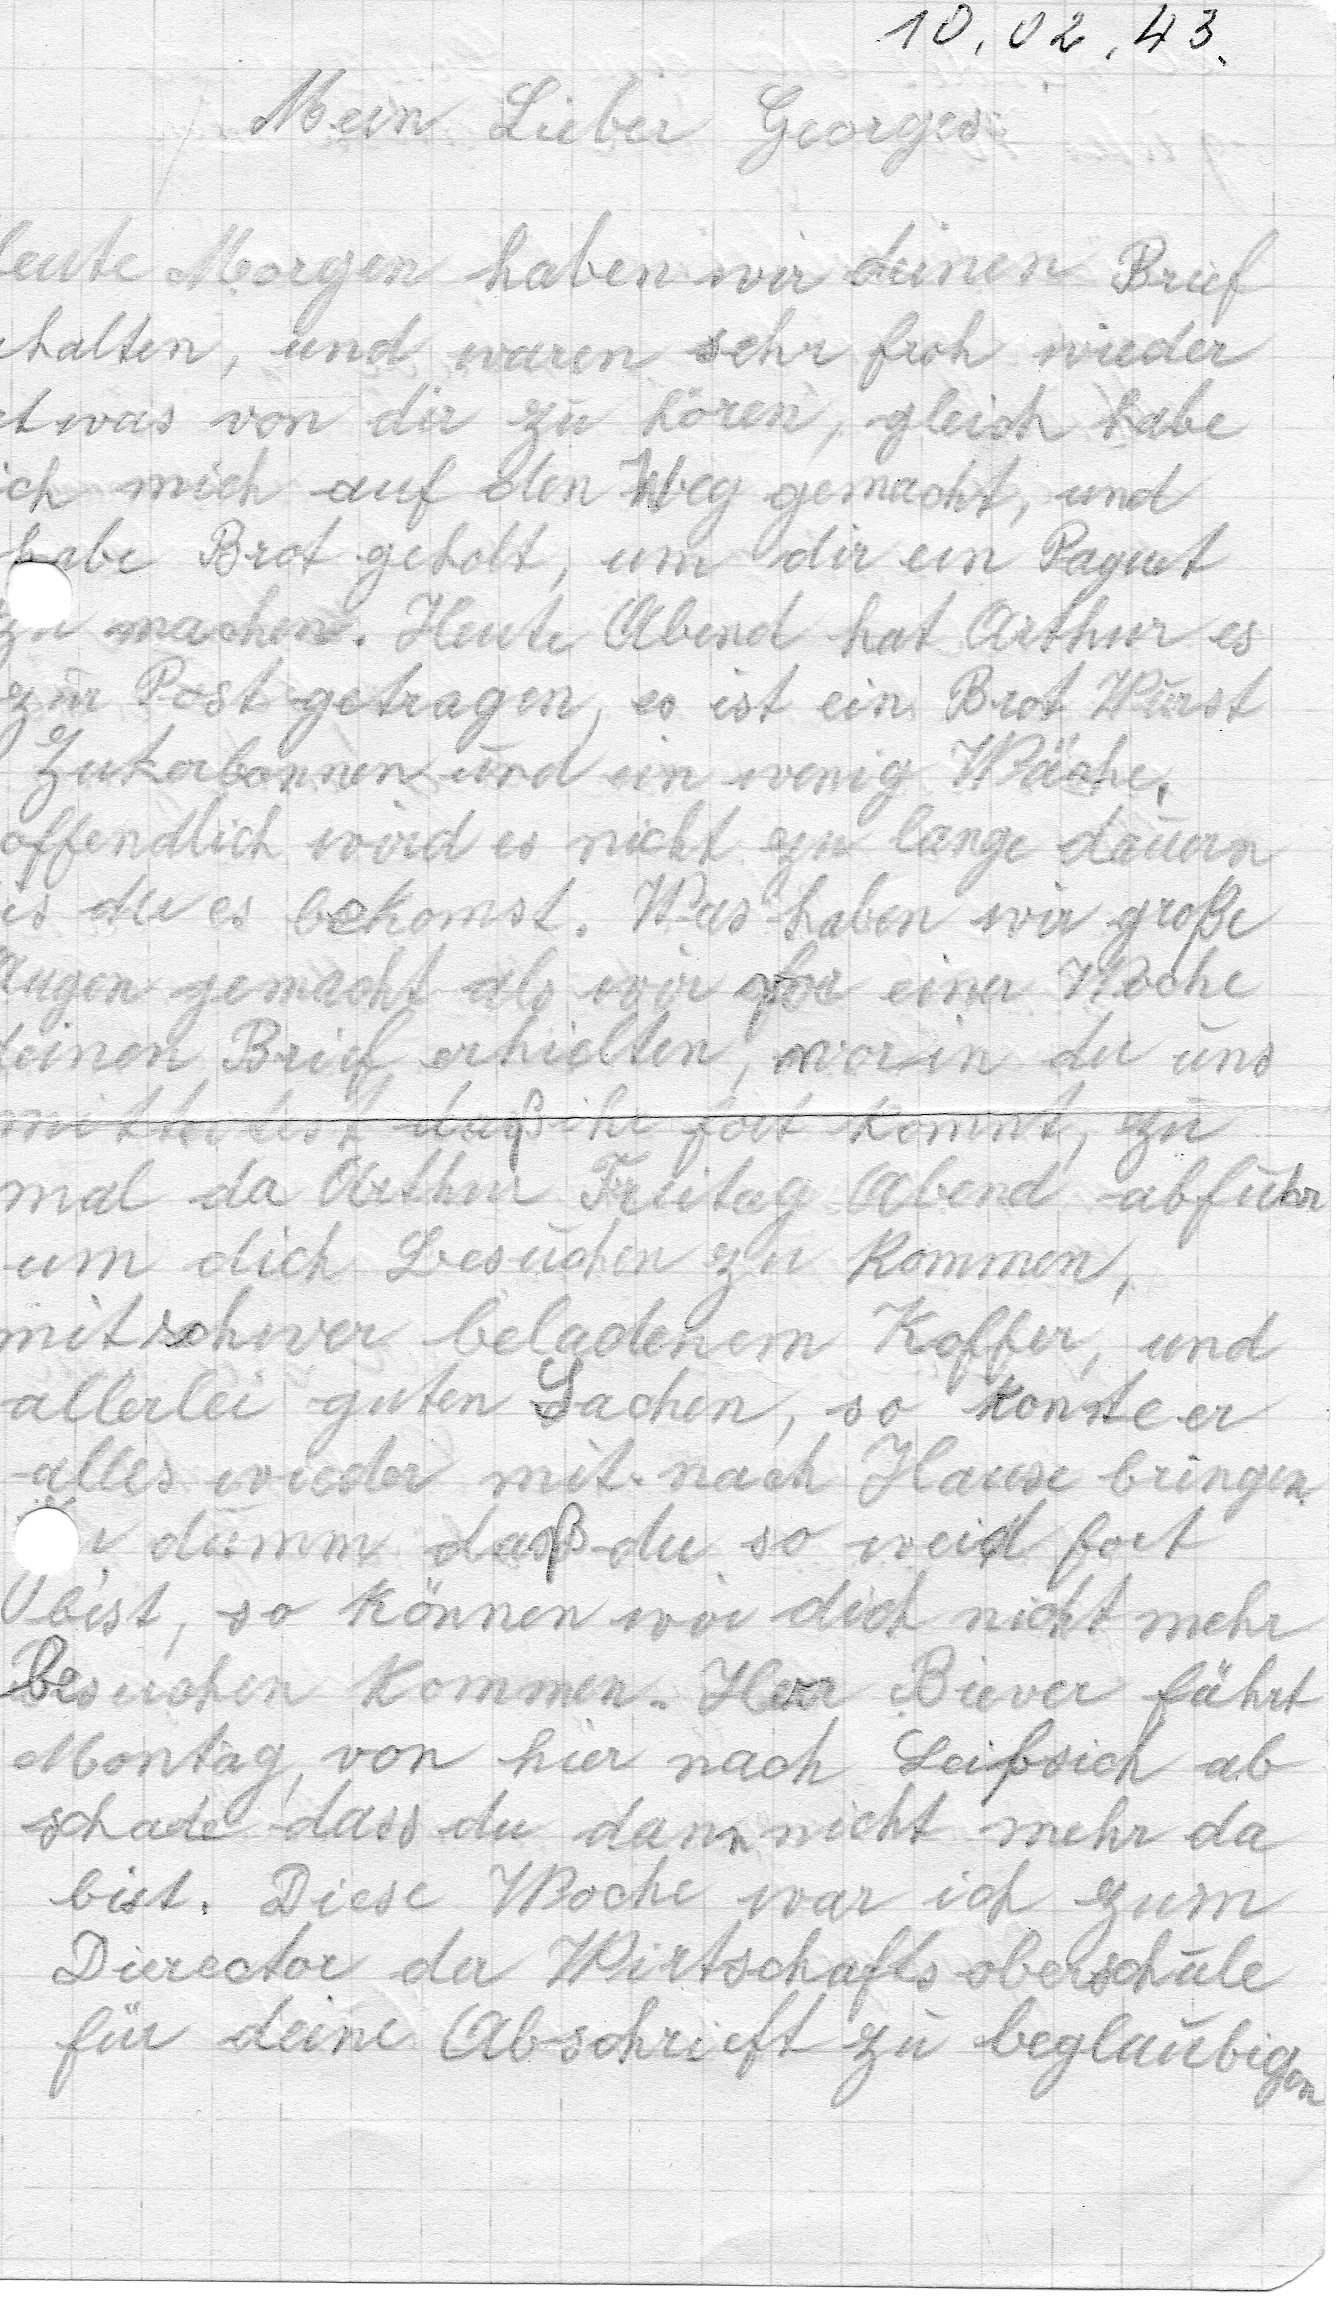 10.02.43.
Mein Lieber Georges
eute Morgen haben wir deinen Brief
halten, und waren sehr froh wieder
etwas von dir zu hören, gleich habe
ich mich auf den Weg gemacht, und
habe Brot geholt, um dir ein Paquet
zu machen. Heute Abend hat Arthur es
zur Post getragen, es ist ein Brot Wurst
Zukerbonnen und ein wenig Wäche.
offendlich wird es nicht zu lange dauern
is du es bekomst. Was haben wir große
Augen gemacht als wir vor einer Woche
deinen Brief erhielten, worin du uns
mitteilst daß ihr fort kommt, zu
mal da Arthur Freitag Abend abfuhr
um dich besuchen zu kommen,
mit schwer beladenem Koffer, und
allerlei guten Sachen, so konnte er
alles wieder mit nach Hause bringen.
dumm daß du so weid fort
bist, so können wir dich nicht mehr
Besuchen kommen. Herr Biever fährt
Montag, von hier nach Leibsich ab
schade dass du dann nicht mehr da
bist. Diese Woche war ich zum
Dierector der Wirtschaftsoberschule
für deine Abschrieft zu beglaubigen